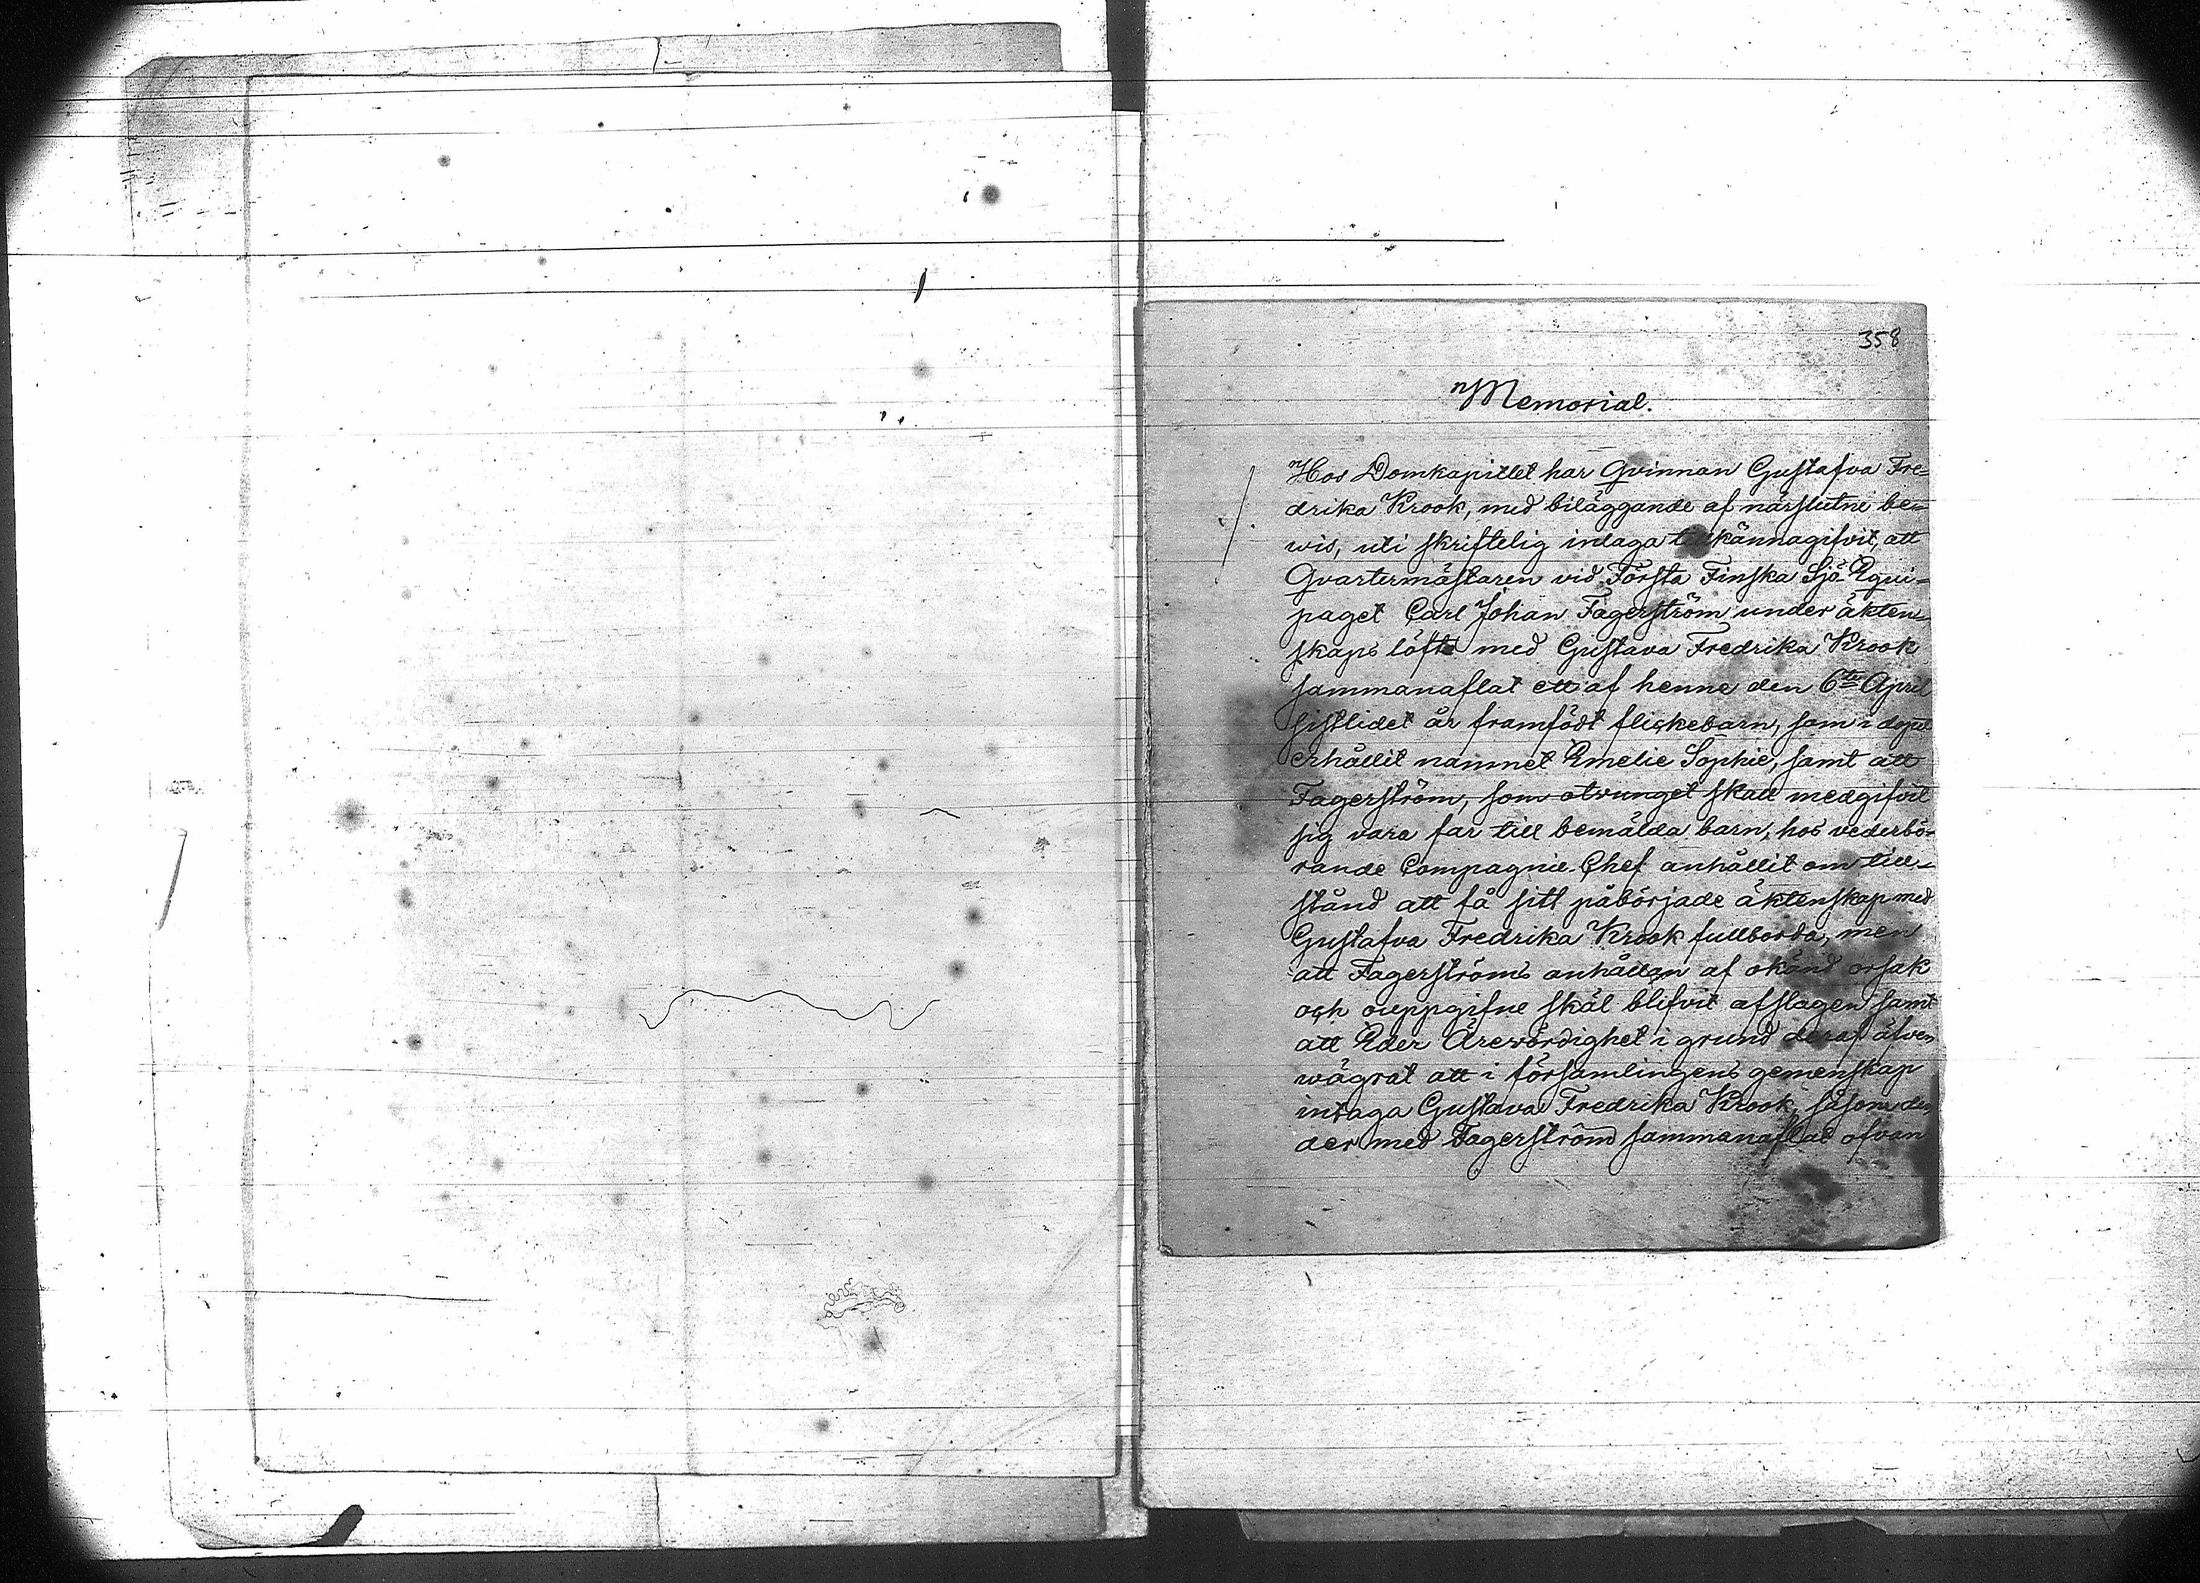 358
Memorial.
Hos Domkapitlet har Qvinnan Gustafva Fre-
drika Krook, med biläggande af närslutne be-
wis, uti skriftelig inlaga tillkännagifvit, att
Qvartermästaren vid Första Finska Sjö-Equi-
paget Carl Johan Fagerström under äkten-
skaps löfte med Gustava Fredrika Krook
sammanaflat ett af henne den 6te April
sistlidet år framfödt flickebarn, som i dopet
erhållit namnet Emelie Sophie, samt att
Fagerström, som otvunget skall medgifvit
sig vara far till bemälda barn, hos vederbö-
rande Compagnie-Chef anhållit om till-
stånd att få sitt påbörjade äktenskap med
Gustafva Fredrika Krook fullborda, men
att Fagerströms anhållan af okänd orsak
och ouppgifne skäl blifvit afslagen samt
att Eder Ärewördighet i grund deraf äfven
wägrat att i församlingens gemenskap
intaga Gustava Fredrika Krook, såsom
der med Fagerström sammanaflat ofvan